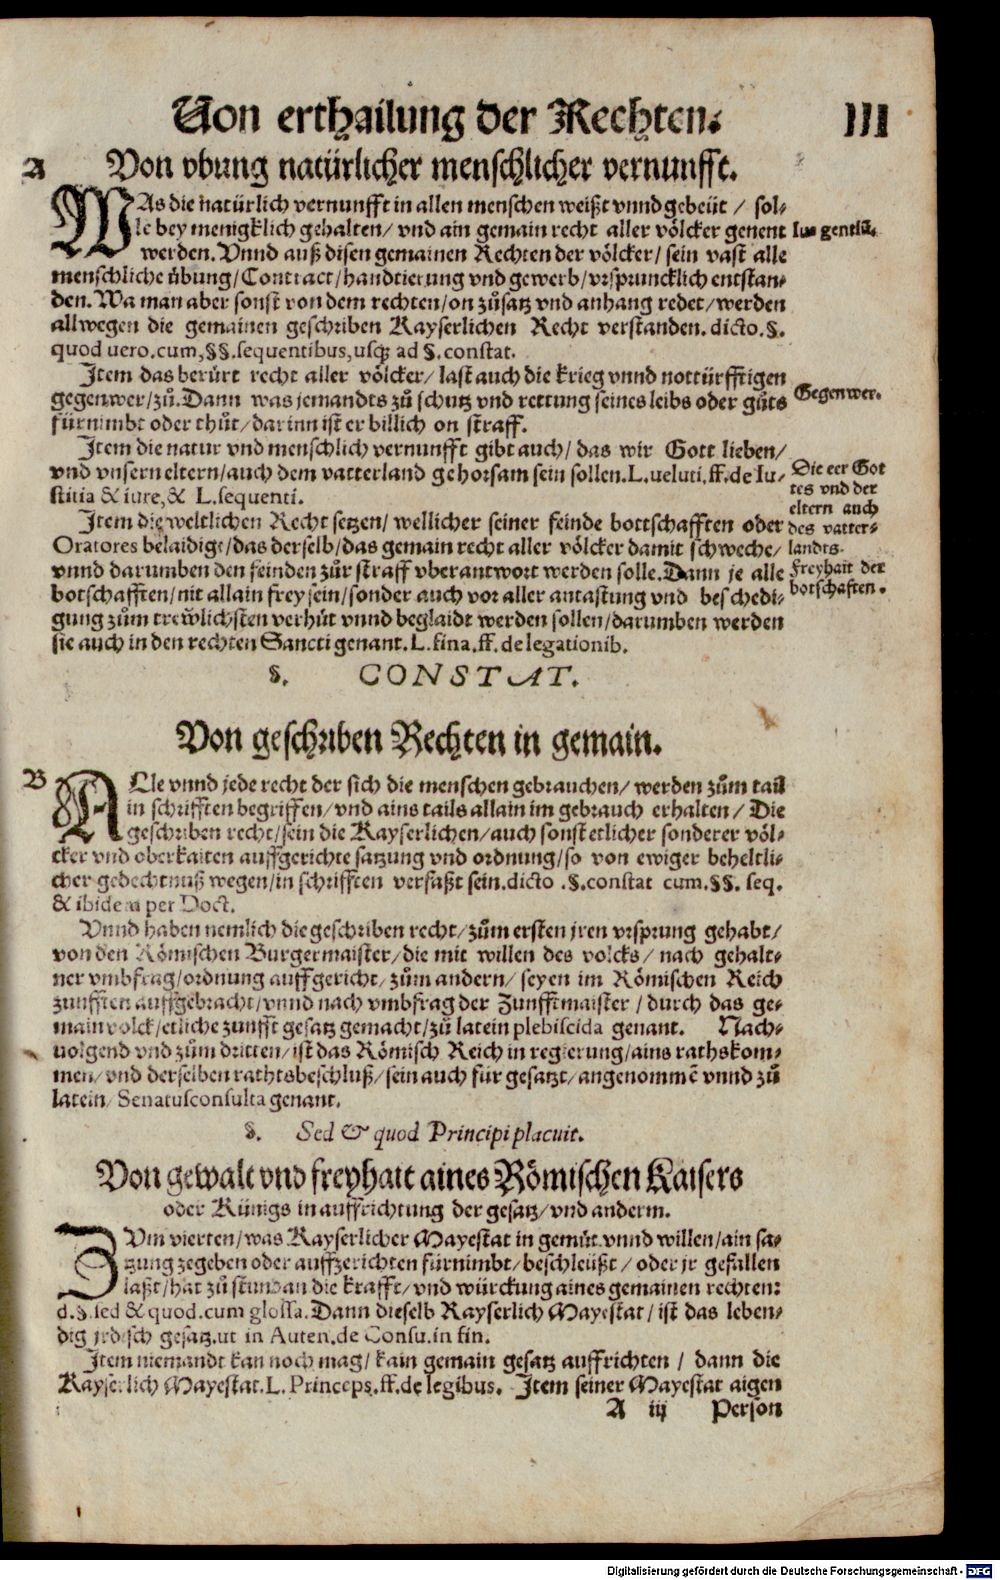 Von erthailung der Rechten. III
A Von vbung natürlicher menschlicher vernunfft.
WAs die natürlich vernunfft in allen menschen weißt vnnd gebeüt / sol-
le bey menigklich gehalten / vnd ain gemain recht aller völcker genent
Ius gentiū.
werden. Vnnd auß disen gemainen Rechten der völcker / sein vast alle
menschliche übung / Contract / handtierung vnd gewerb / vrspruncklich entstan-
den. Wa man aber sonst von dem rechten / on zůsatz vnd anhang redet / werden
allwegen die gemainen geschriben Kayserlichen Recht verstanden. dicto. §.
quod uero. cum, §§. sequentibus, usq; ad §. constat.
Item das berürt recht aller völcker / last auch die krieg vnnd nottürfftigen
gegenwer / zů. Dann was jemandts zů schutz vnd rettung seines leibs oder gůts
Gegenwer.
fürnimbt oder thůt / darinn ist er billich on straff.
Item die natur vnd menschlich vernunfft gibt auch / das wir Gott lieben /
vnd vnsern eltern / auch dem vatterland gehorsam sein sollen. L. ueluti. ff. de Iu-
stitia & iure, & L. sequenti.
Die eer Got
tes vnd der
eltern auch
des vatter-
landts.
Item die weltlichen Recht setzen / wellicher seiner feinde bottschafften oder
Oratores belaidigt / das derselb / das gemain recht aller völcker damit schweche /
vnnd darumben den feinden zůr straff vberantwort werden solle. Dann je alle
Freyhait der
botschaften.
botschafften / nit allain frey sein / sonder auch vor aller antastung vnd beschedi-
gung zům trewlichsten verhüt vnnd beglaidt werden sollen / darumben werden
sie auch in den rechten Sancti genant. L. fina. ff. de legationib.
§. CONSTAT.
Von geschriben Rechten in gemain.
B ALle vnnd jede recht der sich die menschen gebrauchen / werden zům tail
in schrifften begriffen / vnd ains tails allain im gebrauch erhalten / Die
geschriben recht / sein die Kayserlichen / auch sonst etlicher sonderer völ-
cker vnd oberkaiten auffgerichte satzung vnd ordnung / so von ewiger beheltli-
cher gedechtnuß wegen / in schrifften verfaßt sein. dicto. §. constat cum. §§. seq.
& ibidem per Doct.
Vnnd haben nemlich die geschriben recht / zům ersten jren vrsprung gehabt /
von den Römischen Burgermaister / die mit willen des volcks / nach gehalt-
ner vmbfrag / ordnung auffgericht / zům andern / seyen im Römischen Reich
zunfften auffgebracht / vnnd nach vmbfrag der Zunfftmaister / durch das ge-
main volck / etliche zunfft gesatz gemacht / zů latein plebiscida genant. Nach-
uolgend vnd zům dritten / ist das Römisch Reich in regierung / ains raths kom-
men / vnd derselben rathtsbeschluß / sein auch für gesatzt / angenommē vnnd zů
latein / Senatusconsulta genant.
§. Sed & quod Principi placuit.
Von gewalt vnd freyhait aines Römischen Kaisers
oder Künigs in auffrichtung der gesatz / vnd anderm.
ZVm vierten / was Kayserlicher Mayestat in gemüt vnnd willen / ain sa-
tzung zegeben oder auffzerichten fürnimbt / beschleüßt / oder jr gefallen
laßt / hat zů stund an die krafft / vnd würckung aines gemainen rechten:
d. §. sed & quod. cum glossa. Dann dieselb Kayserlich Mayestat / ist das leben-
dig jrdisch gesatz. ut in Auten. de Consu. in fin.
Item niemandt kan noch mag / kain gemain gesatz auffrichten / dann die
Kayserlich Mayestat. L. Princeps. ff. de legibus. Item seiner Mayestat aigen
A iij Person
Digitalisierung gefördert durch die Deutsche Forschungsgemeinschaft - DFG